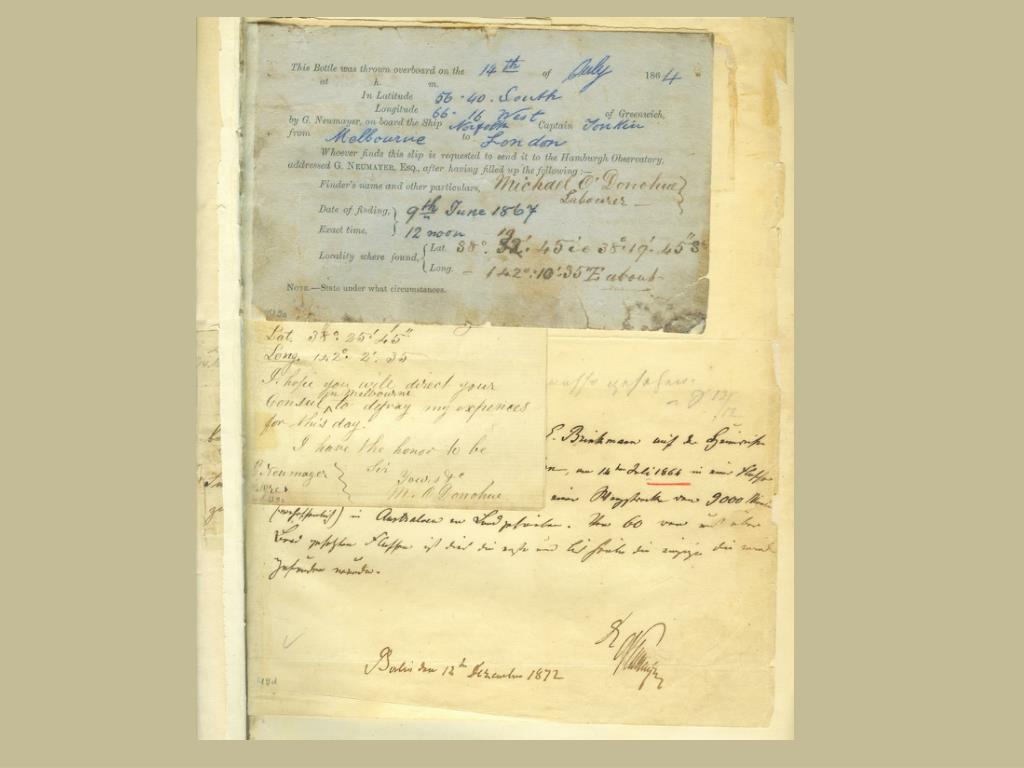 This Bottle was thrown overboard on the 14th of July 1864
at h. m.
In Latitude 56·40. South
Longitude 66·16 West of Greenwich,
by G. Neumayer, on board the Ship Norfolk Captain Tonkin
from Melbourne to London
Whoever finds this slip is requested to send it to the Hamburgh Observatory,
addressed G. NEUMAYER, ESQ., after having filled up the following:—
Finder's name and other particulars, Michael O'Donohue
Labourer —
Date of finding, 9th June 1867
Exact time, 12 noon
19
Locality where found, Lat. 38°. 32'. 45 i e 38°.19'. 45" S
Long. — 142°.10'.35" E about
NOTE.—State under what circumstances.
Lat. 38° 25' 45"
Long. 142° 2'. 35
I hope you will direct your
in Melbourne
Consul to defray my expences
for this day.
I have the honor to be
Sir
G Neumayer Yours &c
M. O Donohue
gesehen.
E. Brinkmann auf der
am 14ten Juli 1864 in eine
einer von 9000
in Australien an Land getrieben. Von 60 von mir über
Bord Flaschen ist dies die erste und bis die einzige die
gefunden wurde.
Berlin den 12ten Dezember 1872